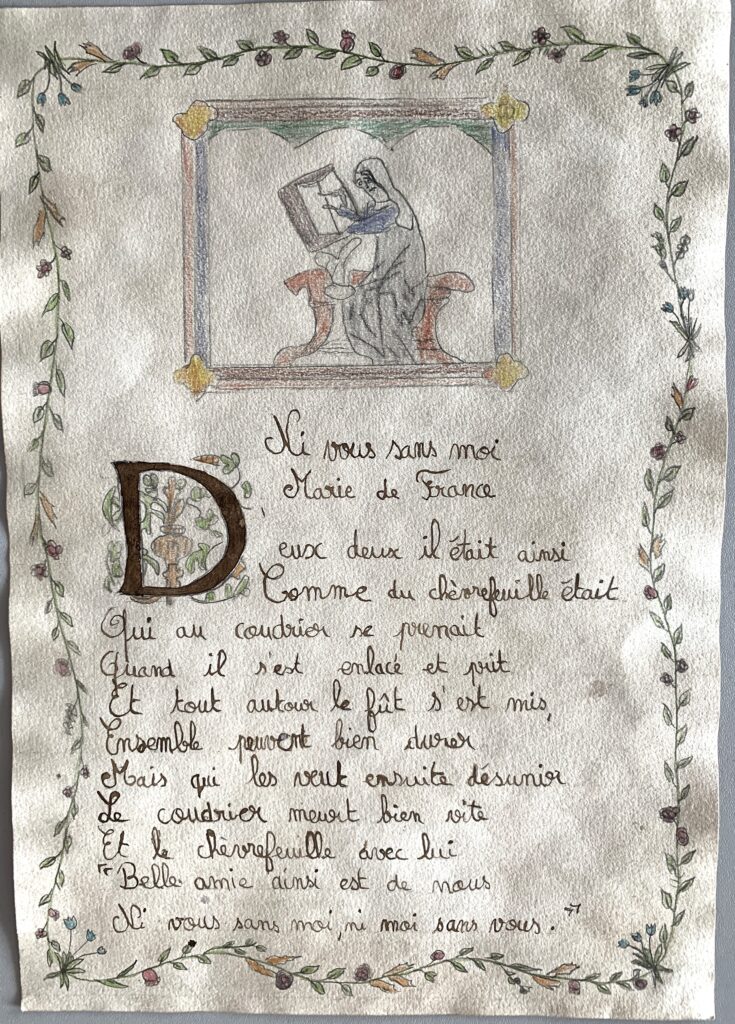 Ni vous sans moi
Marie de France
Deux deux il était ainsi
Comme du chèvrefeuille était
Qui au coudrier se prenait
Quand il s'est enlacé et prit
Et tout autour le fût s'est mis,
Ensemble peuvent bien durer
Mais qui les veut ensuite désunir
Le coudrier meurt bien vite
Et le chèvrefeuille avec lui
"Belle amie ainsi est de nous
Ni vous sans moi, ni moi sans vous."